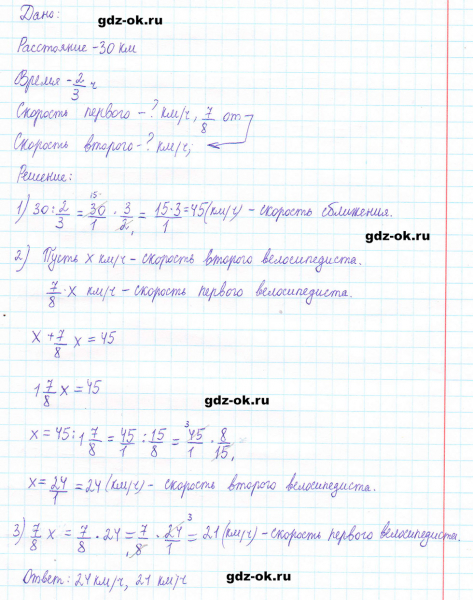 Дано:
gdz-ok.ru
Расстояние - 30 км
Время - 2/3 ч
Скорость первого - ? км/ч, 7/8 от
Скорость второго - ? км/ч;
Решение:
1) 30 : 2/3 = 30/1 · 3/2 = 15·3/1 = 45 (км/ч) - скорость сближения.
gdz-ok.ru
2) Пусть x км/ч - скорость второго велосипедиста.
7/8 · x км/ч - скорость первого велосипедиста.
x + 7/8 x = 45
1 7/8 x = 45
gdz-ok.ru
x = 45 : 1 7/8 = 45/1 : 15/8 = 45/1 · 8/15
x = 24/1 = 24 (км/ч) - скорость второго велосипедиста.
3) 7/8 x = 7/8 · 24 = 7/8 · 24/1 = 21 (км/ч) - скорость первого велосипедиста.
Ответ: 24 км/ч, 21 км/ч
gdz-ok.ru